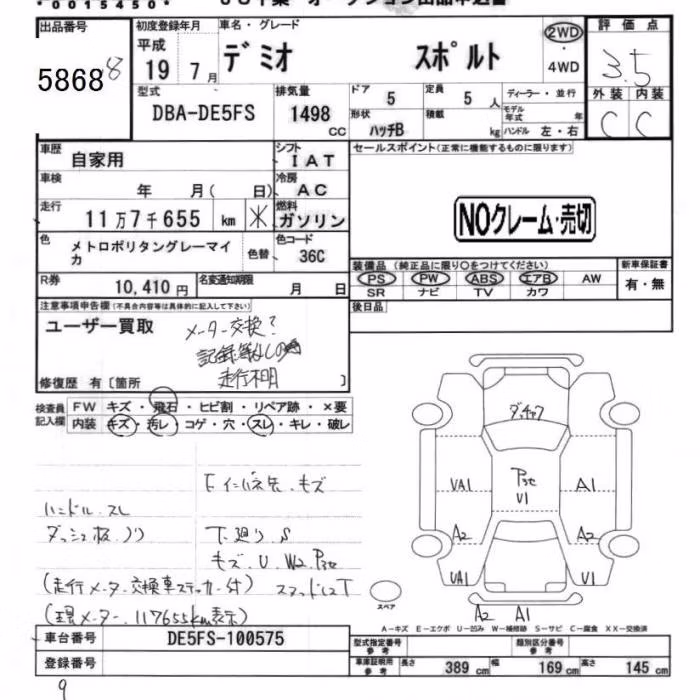 ・0015450・
出品番号 初度登録年月 車名・グレード 評価点
58688 平成 19 7月 デミオ スポルト 2WD・4WD 3.5
型式 排気量 ドア 定員 ディーラー・並行 外装 内装
DBA-DE5FS 1498 CC 5 5人 モデル年式 年 C C
形状 積載 ハンドル 左・右
ハッチB kg
車歴 自家用 シフト IAT セールスポイント(正常に機能するものに限ります)
車検 年 月( 日) 冷房 AC
走行 11万7千655 km ＊ 燃料 ガソリン NOクレーム・売切
色 メトロポリタングレーマイカ 色替 色コード 36C
装備品(純正品に限り○をつけてください) 新車保証書
PS PW ABS エアB AW 有・無
SR ナビ TV カワ
R券 10,410円 名変通知期限 月 日
後日品
注意事項申告欄(不具合内容等は具体的に記入して下さい)
ユーザー買取 メーター交換?
走行不明
修復歴 有〔箇所 〕
検査員記入欄 FW キズ・飛石・ヒビ割・リペア跡・×要
内装 キズ・汚レ・コゲ・穴・スレ・キレ・破レ
ダッシュ板ノリ
ハンドル.スレ
下廻り.S
キズ.U.W2.
(走行メーター交換車ステッカー付)
(現メーター.117655km表示)
UA1 U1 A1
A2 A2
UA1 U1
A2 A1
スペア
A－キズ E－エクボ U－凹み W－補修跡 S－サビ C－腐食 XX－交換済
車台番号 DE5FS-100575
登録番号
型式指定番号 参考 類別区分番号 参考
車庫証明用 参考 長さ 389cm 幅 169cm 高さ 145cm
9